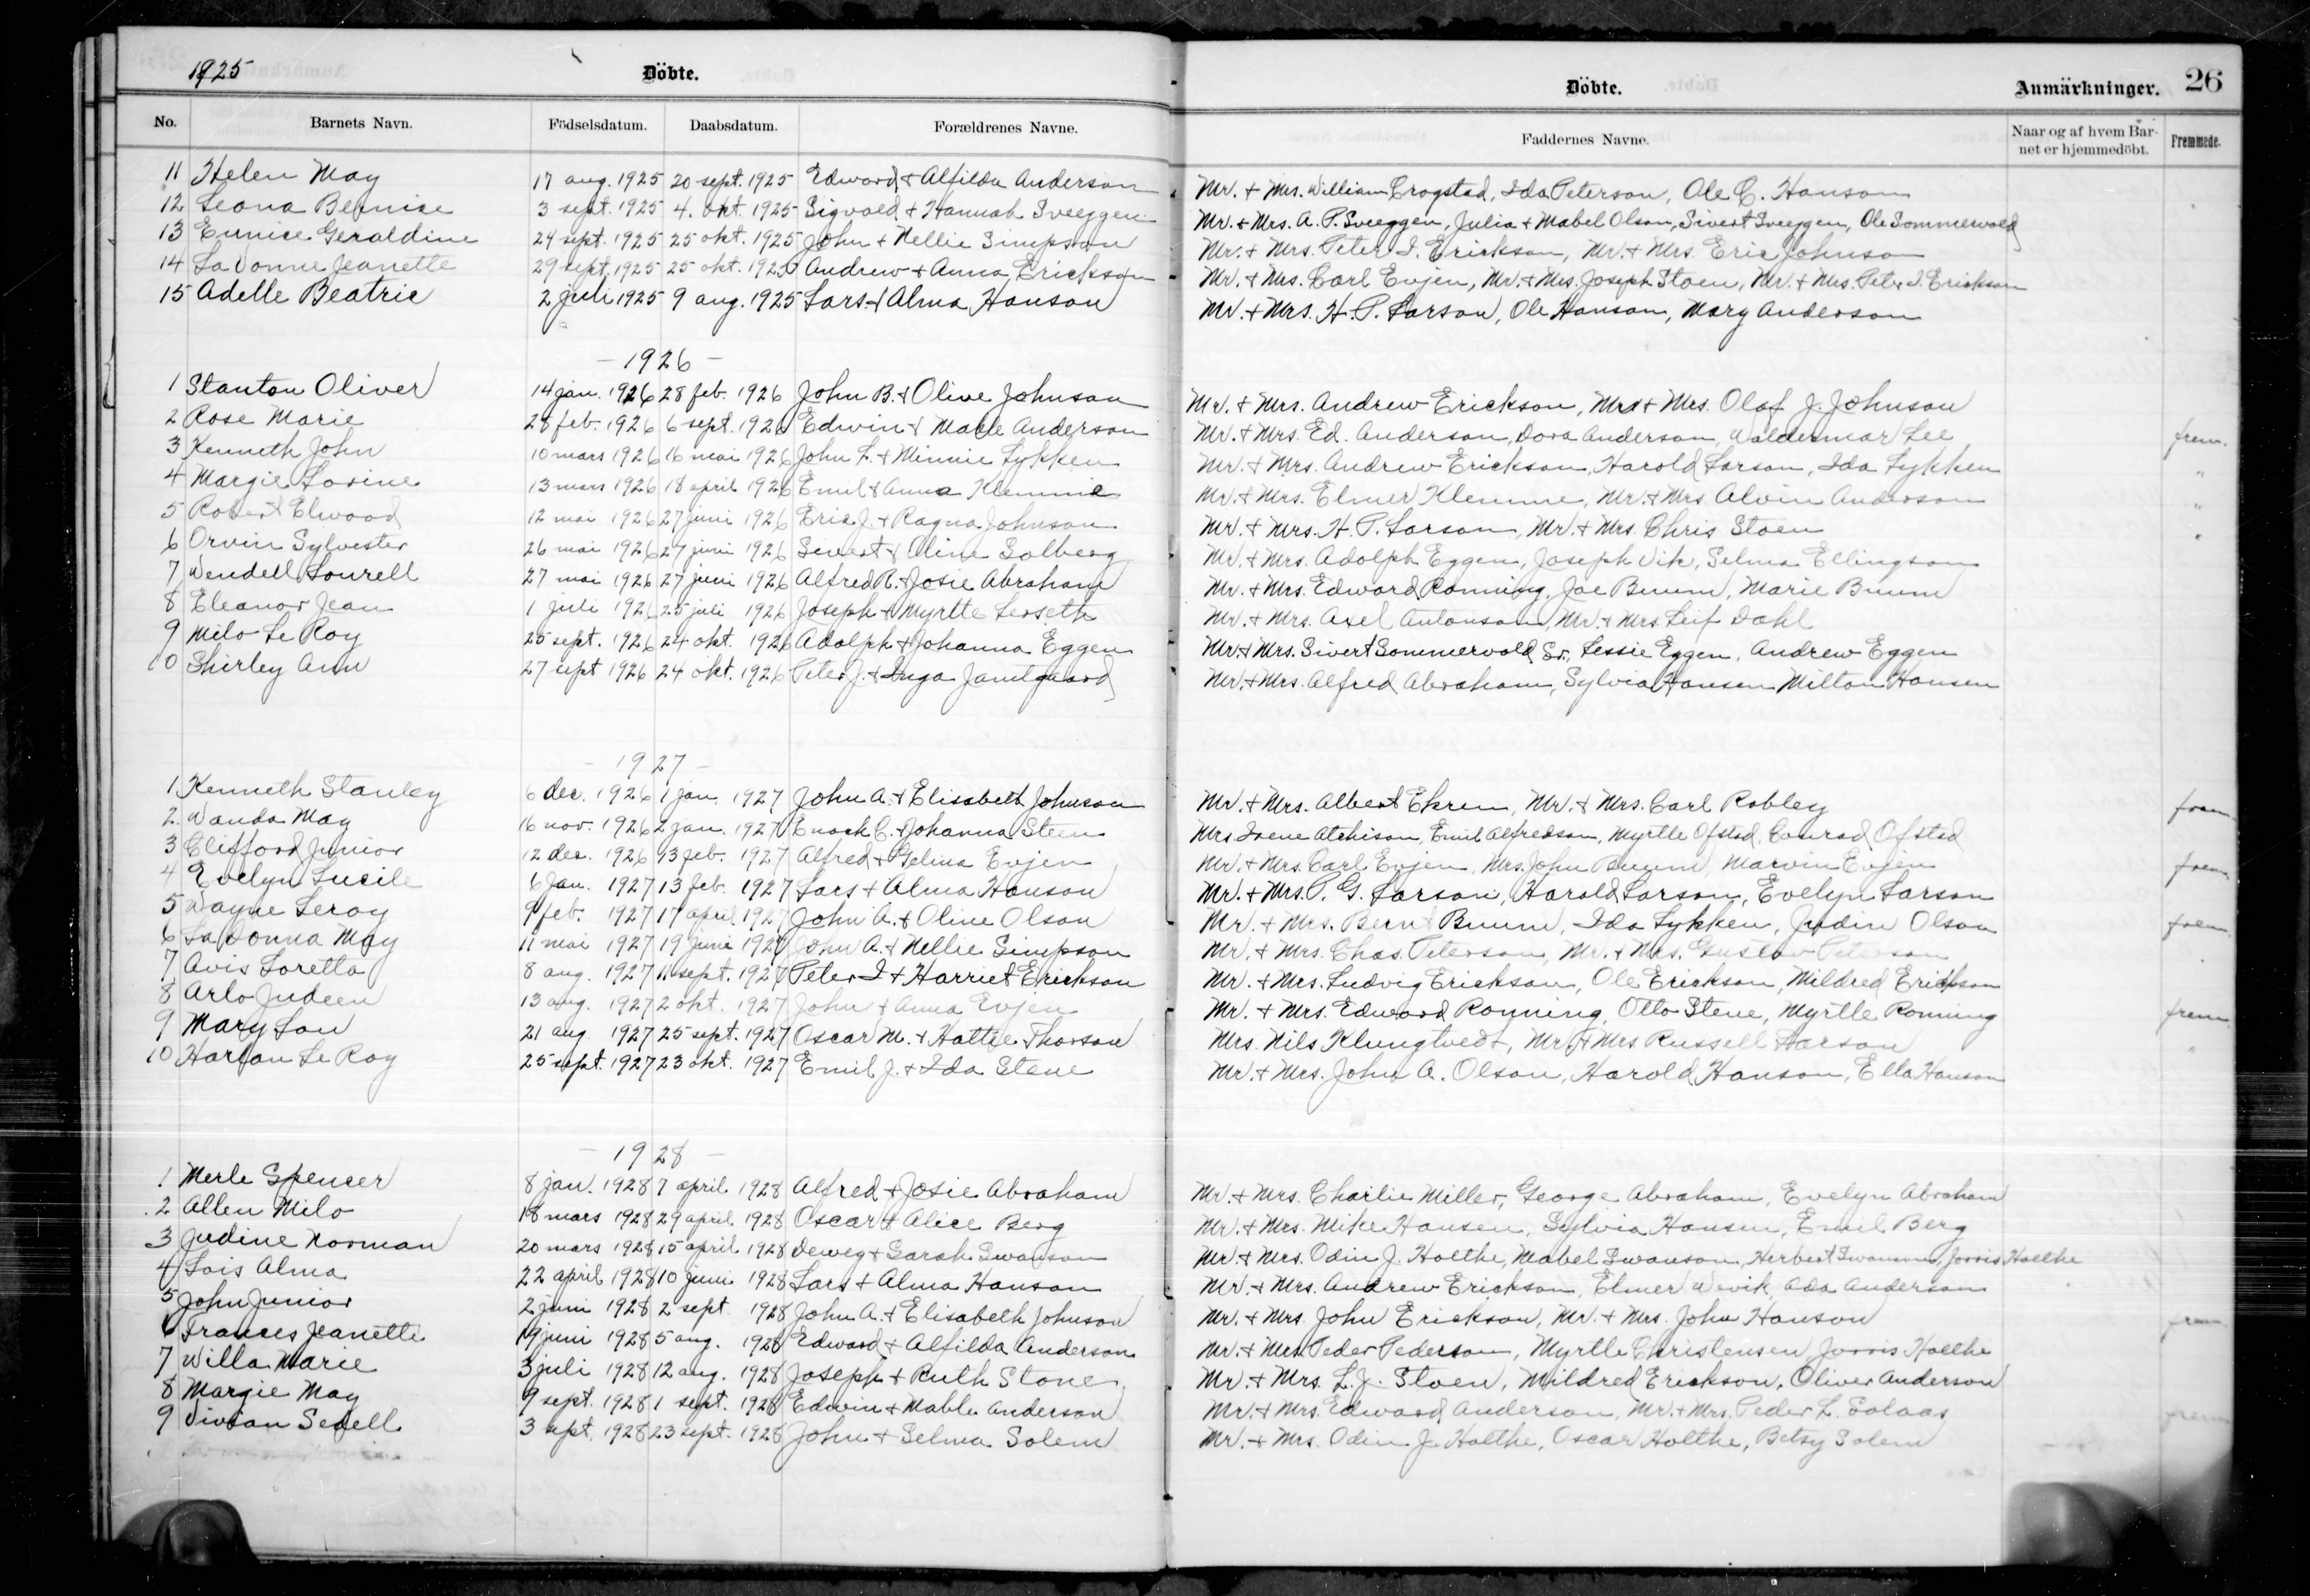 1925 Döbte. Döbte. Anmärkninger. 26
No. Barnets Navn. Födselsdatum. Daabsdatum. Forældrenes Navne. Faddernes Navne. Naar og af hvem Barnet er hjemmedöbt. Fremmede.
11 Helen May 17 aug. 1925 20 sept. 1925 Edward + Alfilda Anderson Mr. + Mrs. William Crogstad, Ida Peterson, Ole C. Hanson
12 Leona Bernice 3 sept. 1925 4. okt. 1925 Sigvald + Hannah Sveeggen Mr. + Mrs. A. P. Sveeggen, Julia + Mabel Olson, Sivert Sveeggen, Ole Sommervold
13 Eunice Geraldine 24 sept. 1925 25 okt. 1925 John + Nellie Simpson Mr. + Mrs. Peter I. Erickson, Mr. + Mrs. Eric Johnson
14 LaVonne Jeanette 29 sept. 1925 25 okt. 1925 Andrew + Anna Erickson Mr. + Mrs. Carl Evjen, Mr. + Mrs. Joseph Stoen, Mr. + Mrs. Peter I. Erickson
15 Adelle Beatrice 2 juli 1925 9 aug. 1925 Lars + Alma Hanson Mr. + Mrs. H. P. Larson, Ole Hanson, Mary Anderson
– 1926 –
1 Stanton Oliver 14 jan. 1926 28 feb. 1926 John B. + Olive Johnson Mr. + Mrs. Andrew Erickson, Mr. + Mrs. Olaf J. Johnson
2 Rose Marie 28 feb. 1926 6 sept. 1926 Edwin + Anderson Mr. + Mrs. Ed. Anderson, Dora Anderson, Waldermar Lee frem.
3 Kenneth John 10 mars 1926 16 mai 1926 John L. + Minnie Lykken Mr. + Mrs. Andrew Erickson, Harold Larson, Ida Lykken "
4 Margie Lorine 13 mars 1926 18 april 1926 Emil + Anna Klemme Mr. + Mrs. Elmer Klemme, Mr. + Mrs. Alvin Anderson "
5 Robert Elwood 12 mai 1926 27 juni 1926 Eric J. + Ragna Johnson Mr. + Mrs. H. P. Larson, Mr. + Mrs. Chris Stoen "
6 Orvin Sylvester 26 mai 1926 27 juni 1926 Sivert + Aline Solberg Mr. + Mrs. Adolph Eggen, Joseph Vik, Selma Ellingson
7 Wendell Lourell 27 mai 1926 27 juni 1926 Alfred R. + Josie Abraham Mr. + Mrs. Edward Ronning, Joe Buum, Marie Buum
8 Eleanor Jean 1 juli 1926 25 juli 1926 Joseph + Myrtle Lerseth Mr. + Mrs. Axel Antonson, Mr. + Mrs. Leif Dahl
9 Milo Le Roy 25 sept. 1926 24 okt. 1926 Adolph + Johanna Eggen Mr. + Mrs. Sivert Sommervold Sr., Lessie Eggen, Andrew Eggen
10 Shirley Ann 27 sept 1926 24 okt. 1926 Peter J. + Inga Jamtgaard Mr. + Mrs. Alfred Abraham, Sylvia Hansen Milton Hansen
– 1927 –
1 Kenneth Stanley 6 dec. 1926 1 jan. 1927 John A. + Elisabeth Johnson Mr. + Mrs. Albert Ekren, Mr. + Mrs. Carl Robley frem
2 Wanda May 16 nov. 1926 2 jan. 1927 Enoch C. + Johanna Steen Mrs. Irene Atchison, Emil Alfredson, Myrtle Ofstad, Conrad Ofstad
3 Clifford Junior 12 dec. 1926 13 feb. 1927 Alfred + Selma Evjen Mr. + Mrs. Carl Evjen, Mrs. John Buum, Marvin Evjen frem
4 Evelyn Lucile 6 Jan. 1927 13 feb. 1927 Lars + Alma Hanson Mr. + Mrs. P. G. Larson, Harold Larson, Evelyn Larson
5 Wayne Leroy 9 feb. 1927 17 april 1927 John A. + Oline Olson Mr. + Mrs. Bernt Buum, Ida Lykken, Judin Olson frem
6 LaDonna May 11 mai 1927 19 juni 1927 John A. + Nellie Simpson Mr. + Mrs. Chas. Peterson, Mr. + Mrs. Gustav Peterson
7 Avis Loretta 8 aug. 1927 11 sept. 1927 Peter I + Harriet Erickson Mr. + Mrs. Ludvig Erickson, Ole Erickson, Mildred Erickson
8 Arlo Judeen 13 aug. 1927 2 okt. 1927 John + Anna Evjen Mr. + Mrs. Edward Ronning, Otto Stene, Myrtle Ronning frem
9 Mary Lou 21 aug 1927 25 sept. 1927 Oscar M. + Hattie Thorson Mrs. Nils Klungtvedt, Mr. + Mrs Russell Larson "
10 Harlan Le Roy 25 sept. 1927 23 okt. 1927 Emil J. + Ida Stene Mr. + Mrs. John A. Olson, Harold Hanson, Ella Hanson
– 1928 –
1 Merle Spencer 8 jan. 1928 7 april 1928 Alfred + Josie Abraham Mr. + Mrs. Charlie Miller, George Abraham, Evelyn Abraham
2 Allen Milo 18 mars 1928 29 april 1928 Oscar + Alice Berg Mr. + Mrs. Mike Hansen, Sylvia Hansen, Emil Berg
3 Judine Norman 20 mars 1928 15 april 1928 Dewey + Sarah Swanson Mr. + Mrs. Odin J. Holthe, Mabel Swanson, Herbert Swanson, Jorris Holthe
4 Lois Alma 22 april 1928 10 juni 1928 Lars + Alma Hanson Mr. + Mrs. Andrew Erickson, Elmer Wevik, Ada Anderson
5 John Junior 2 juni 1928 2 sept. 1928 John A. + Elisabeth Johnson Mr. + Mrs. John Erickson, Mr. + Mrs. John Hanson frem
6 Frances Jeanette 19 juni 1928 5 aug. 1928 Edward + Alfilda Anderson Mr. + Mrs Peder Pederson, Myrtle Christensen, Jorris Holthe
7 Willa Marie 3 juli 1928 12 aug. 1928 Joseph + Ruth Stone Mr. + Mrs. L. J. Stoen, Mildred Erickson, Oliver Anderson
8 Margie May 9 sept. 1928 1 sept. 1928 Edwin + Mable Anderson Mr. + Mrs. Edward Anderson, Mr. + Mrs. Peder L. Solaas frem
9 Vivian Sedell 3 sept. 1928 23 sept. 1928 John + Selma Solem Mr. + Mrs. Odin J. Holthe, Oscar Holthe, Betsy Solem